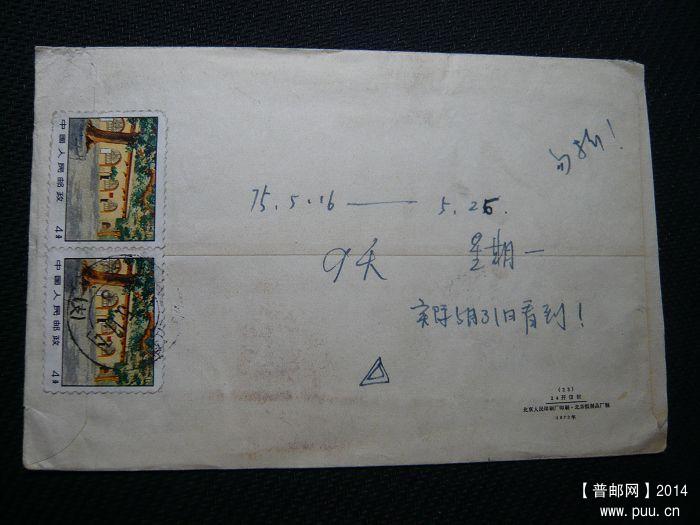 中国人民邮政
4分
中国人民邮政
4分
勿折!
75.5.16 —— 5.25.
9天 星期一
实际5月31日看到!
(23)
24开信封
北京人民印刷厂印刷·北京纸制品厂制
1973年
【普邮网】2014
www.puu.cn